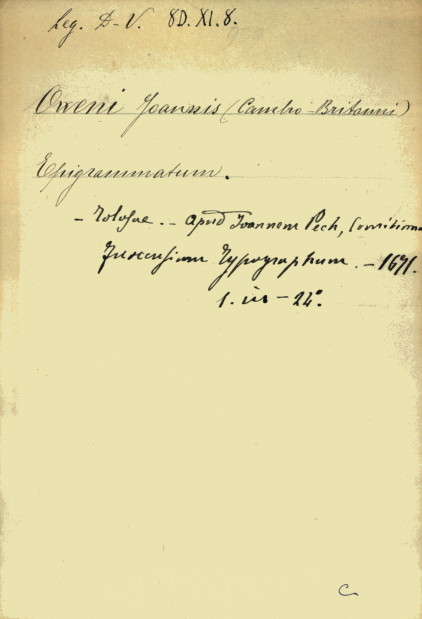 Leg. D-V. 8D. XI. 8.
Oweni Joannis (Cambro-Britanni)
Epigrammatum.
- Tolosae. - apud Joannem Pech, Comitiorum
Fuxensium Typographum. - 1671.
1. in - 24º.
C